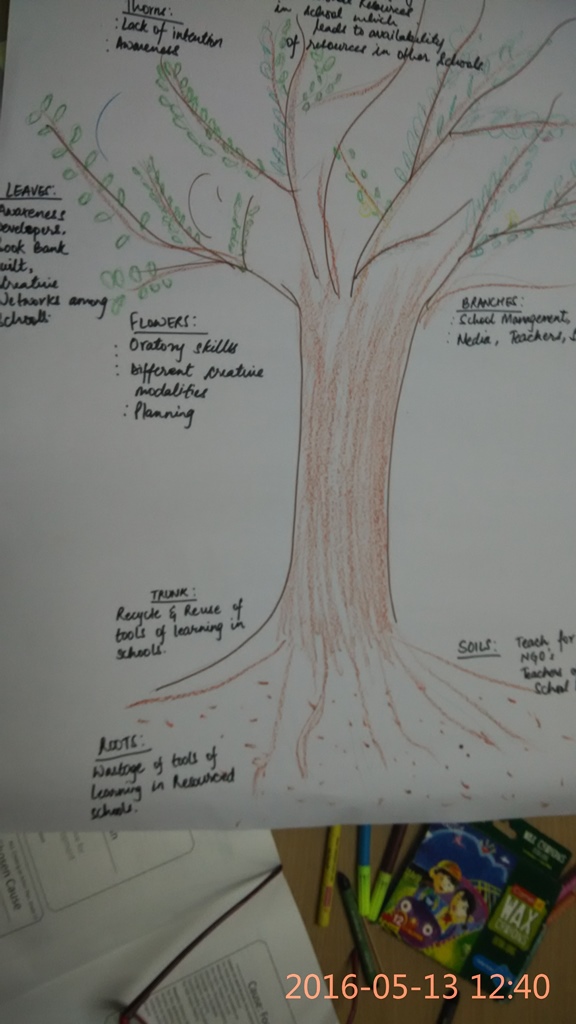 Thorns:
: Lack of intention
: Awareness
Resources
in school which
leads to availability
of resources in other schools
LEAVES:
Awareness
Developers,
Book Bank
built,
Creative
Networks among
schools.
FLOWERS:
: Oratory skills
: Different creative
modalities
: Planning
BRANCHES:
: School Management,
: Media, Teachers, S
TRUNK:
Recycle & Reuse of
tools of learning in
schools.
SOILS: Teach for
NGO's
Teachers
School
ROOTS:
Wastage of tools of
learning in Resourced
schools.
Chosen Cause
WAX
CRAYONS
12
2016-05-13 12:40